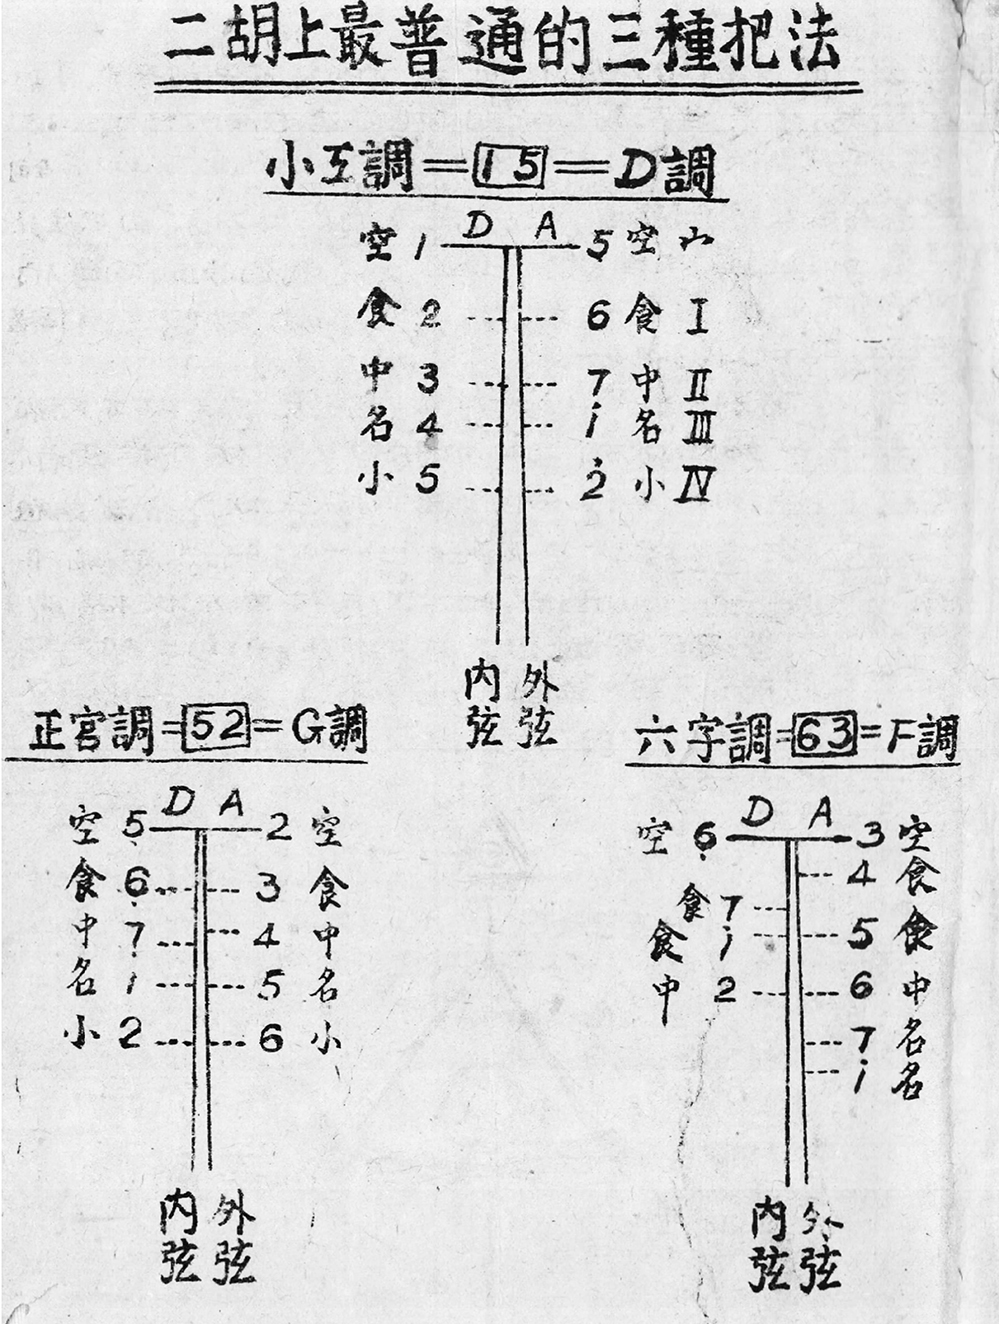 二胡上最普通的三種把法
小工調=15=D調
D A
空 1 5 空 ㄣ
食 2 6 食 I
中 3 7 中 II
名 4 i 名 III
小 5 2̇ 小 IV
内弦 外弦
正宮調=52=G調
D A
空 5̣ 2 空
食 6̣ 3 食
中 7̣ 4 中
名 1 5 名
小 2 6 小
内弦 外弦
六字調=63=F調
D A
空 6̣ 3 空
4 食
食 7̣
食 1 5 食
中 2 6 中
7 名
i 名
内弦 外弦